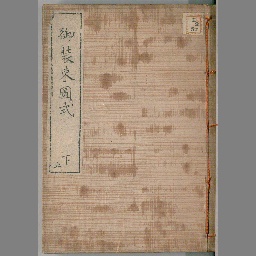 御装束圖式
下